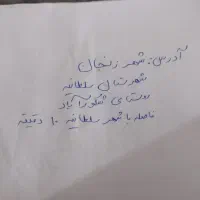 آدرس: شهر زنجان
شهرستان سلطانیه
روستای شکورآباد
فاصله با شهر سلطانیه ۱۰ دقیقه